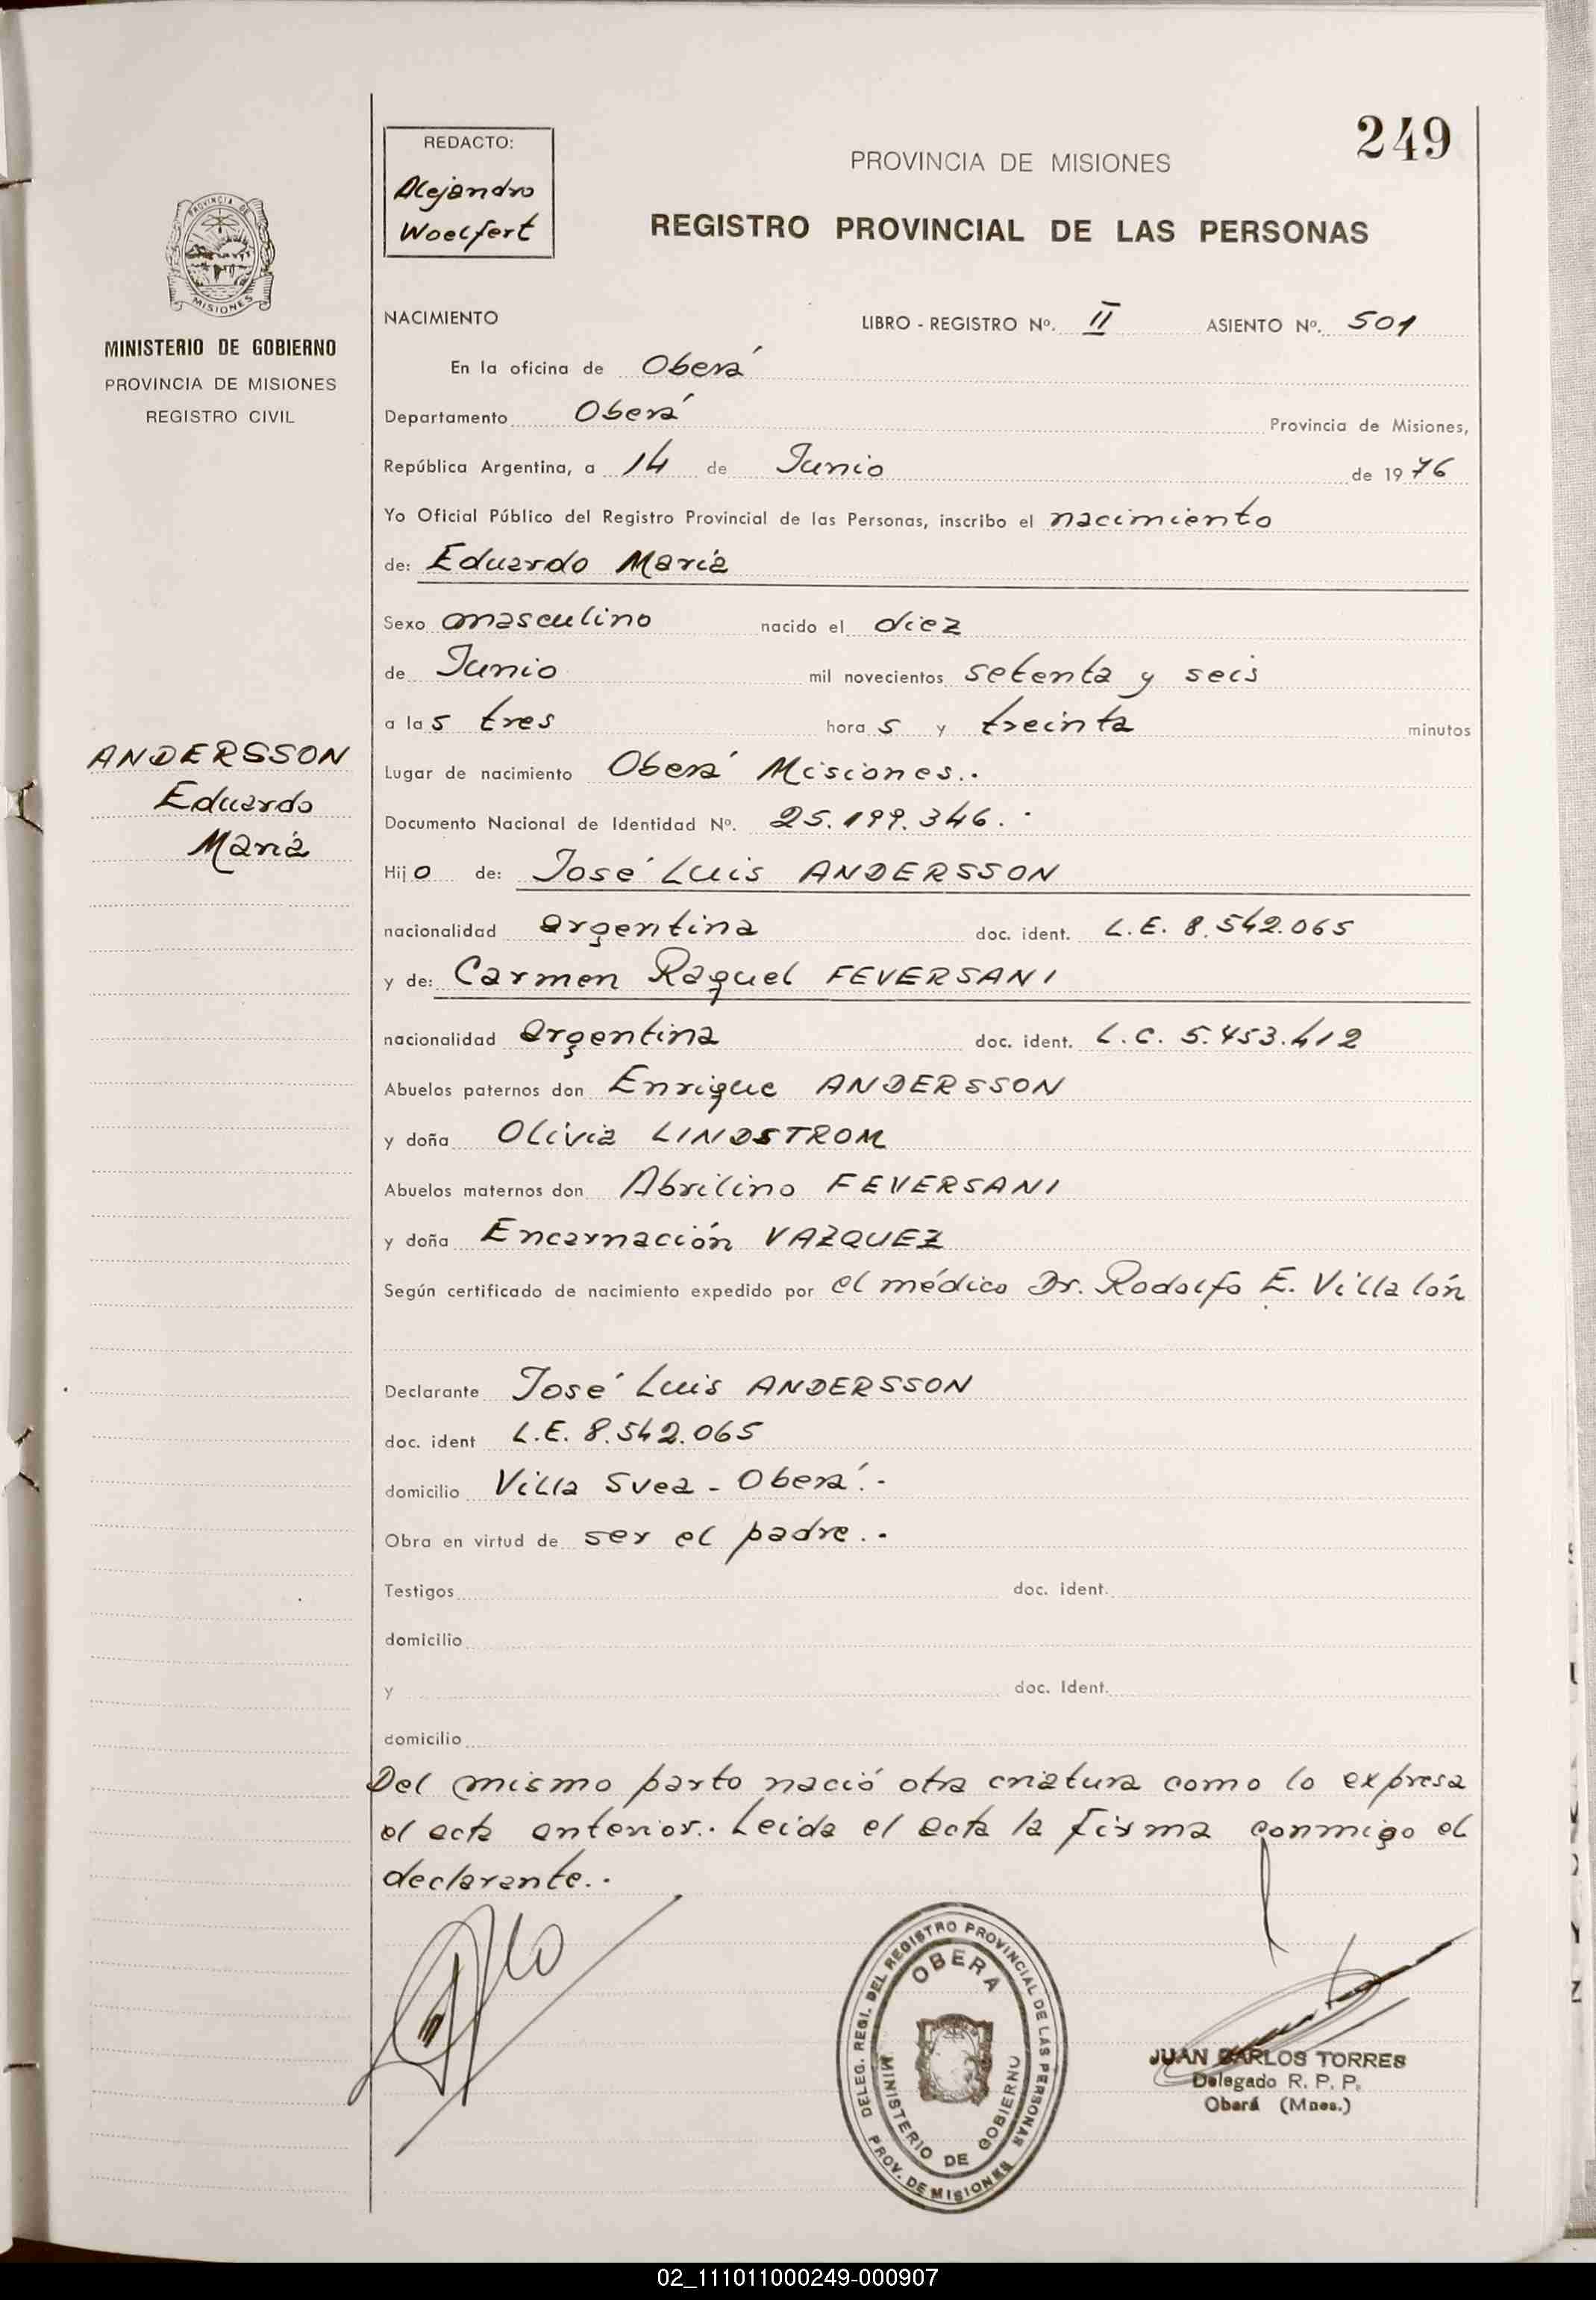 249
REDACTO:
Alejandro
Woelfert
PROVINCIA DE MISIONES
REGISTRO PROVINCIAL DE LAS PERSONAS
PROVINCIA DE
MISIONES
MINISTERIO DE GOBIERNO
PROVINCIA DE MISIONES
REGISTRO CIVIL
NACIMIENTO LIBRO - REGISTRO Nº. II ASIENTO Nº. 501
En la oficina de Oberá
Departamento Oberá Provincia de Misiones,
República Argentina, a 14 de Junio de 1976
Yo Oficial Público del Registro Provincial de las Personas, inscribo el nacimiento
de: Eduardo María
Sexo masculino nacido el diez
de Junio mil novecientos setenta y seis
a las tres horas y treinta minutos
ANDERSSON
Eduardo
María
Lugar de nacimiento Oberá Misiones..
Documento Nacional de Identidad Nº. 25.199.346.
Hijo de: José Luis ANDERSSON
nacionalidad argentina doc. ident. L.E. 8.542.065
y de: Carmen Raquel FEVERSANI
nacionalidad argentina doc. ident. L.C. 5.453.412
Abuelos paternos don Enrique ANDERSSON
y doña Olivia LINDSTROM
Abuelos maternos don Abrilino FEVERSANI
y doña Encarnación VAZQUEZ
Según certificado de nacimiento expedido por el médico Dr. Rodolfo E. Villalón
Declarante José Luis ANDERSSON
doc. ident L.E. 8.542.065
domicilio Villa Svea - Oberá.-
Obra en virtud de ser el padre..
Testigos doc. ident.
domicilio
y doc. Ident.
domicilio
Del mismo parto nació otra criatura como lo expresa
el acta anterior.. Leida el acta la firma conmigo el
declarante..
DELEG. REGI. DEL REGISTRO PROVINCIAL DE LAS PERSONAS
OBERA
MINISTERIO DE GOBIERNO
PROV. DE MISIONES
JUAN CARLOS TORRES
Delegado R. P. P.
Oberá (Mnes.)
02_111011000249-000907